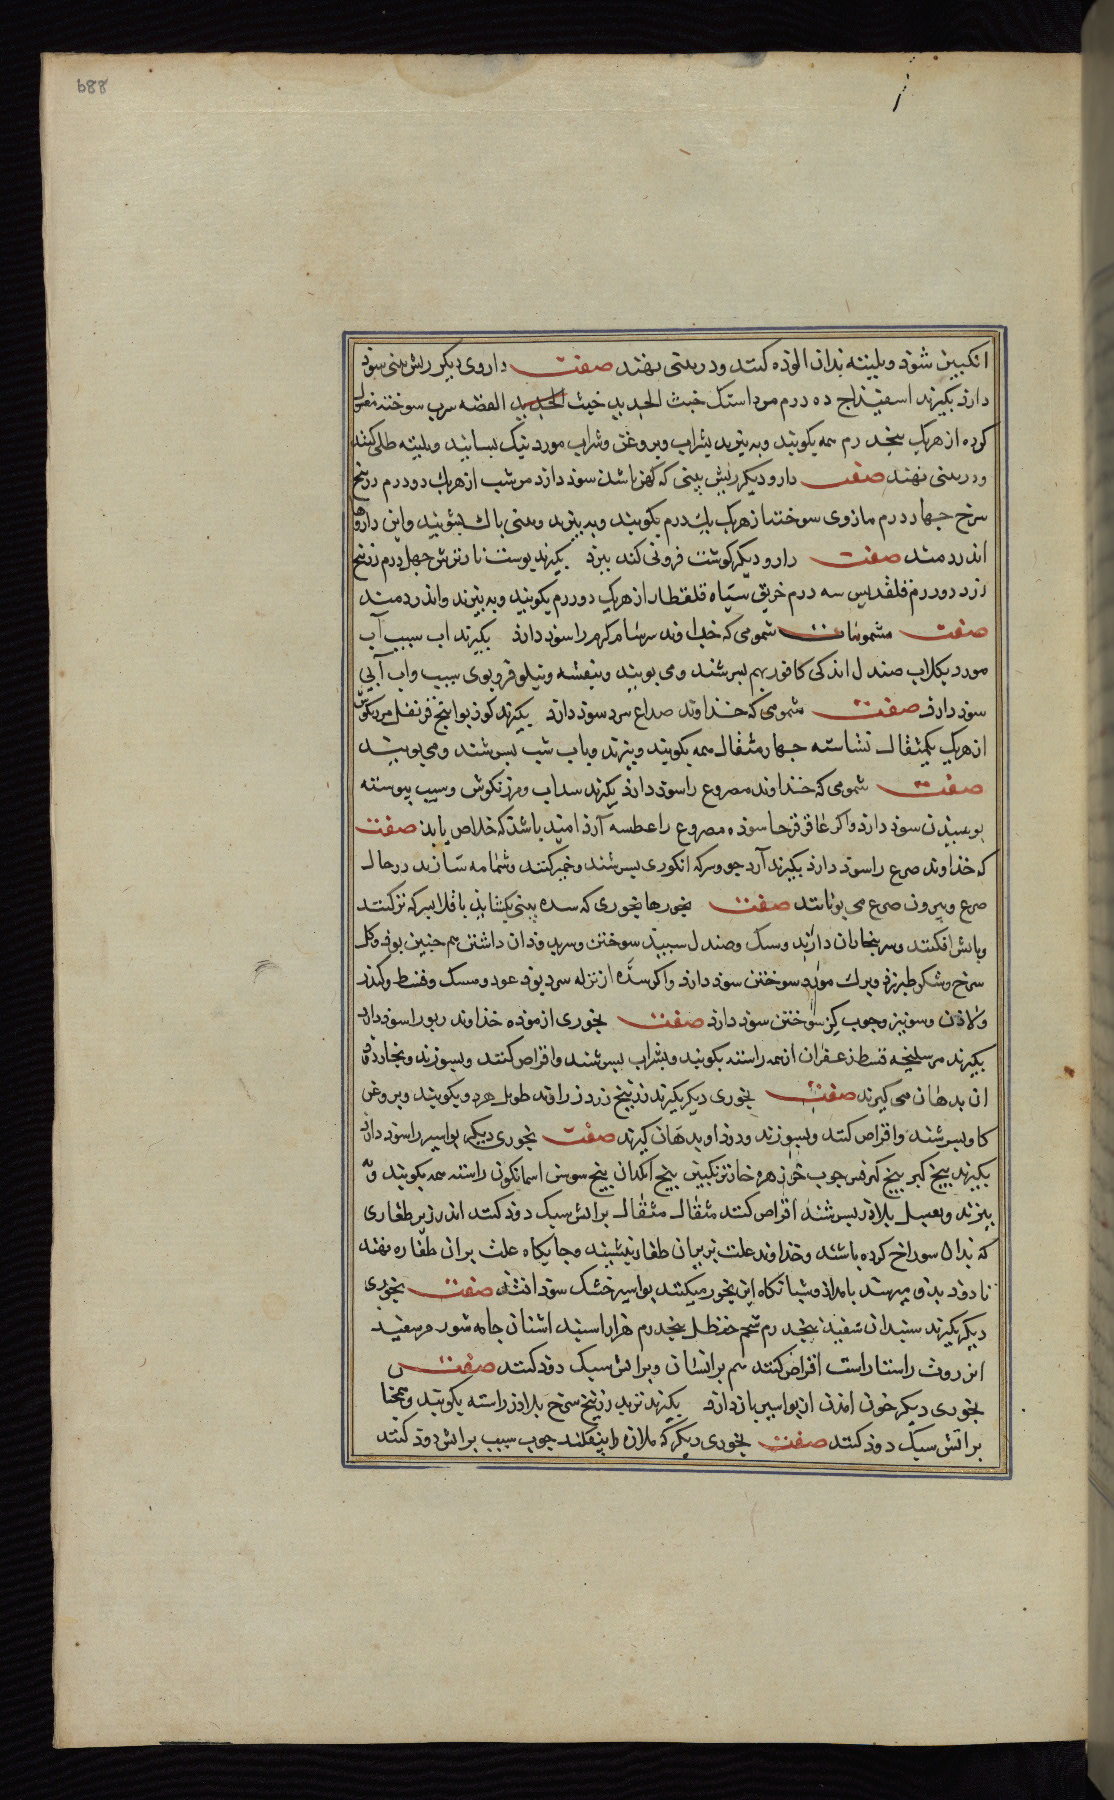 688
انکبین شوذ وبلیته بذان الوذه کنند ودر بینی نهند صفت داروی دیکر ریش بینی سوذ
دارذ بکیرند اسفیذاج ده درم مرداسنک خبث الحدید خبث الفضه سرب سوخته مغسول
کرده از هریک پنجدرم همه بکوبند وبه بیزند بشراب وبروغن وشراب مورد نیک بسایند وبلیته طلی کنند
ودر بینی نهند صفت دارو دیکر ریش بینی که کهن باشذ سوذ دارذ مر شب از هریک دودرم زرنیخ
سرخ چهاردرم مازوی سوخته از هریک یکدرم بکوبند وبه بیزند وبینی پاک بشویند واین داروها
اندر دمند صفت دارو دیکر کوشت فزونی کند ببرذ بکیرند پوست نار ترش چهل درم زرنیخ
زرد دودرم قلقدیس سه درم خربق سیاه قلقطار از هریک دودرم بکوبند وبه بیزند واندر دمند
صفت مشمومات شمومی که خداوند سرسام کرم را سوذ دارذ بکیرند اب سیب آب
مورد بکلاب صندل اندکی کافور بهم بسرشند ومی بویند وبنفشه ونیلوفر وبوی سیب واب آبی
سوذ دارذ صفت شمومی که خداوند صداع سرد سوذ دارذ بکیرند کوز بوا بنج قرنفل مرزنکوش
از هریک یکمثقال نشاسته چهار مثقال همه بکوبند وبیزند وباب شب بسرشند ومی بویند
صفت شمومی که خداوند مصروع را سوذ دارذ بکیرند سداب ومرزنکوش وسیب پیوسته
بوییذن سوذ دارذ واکر عاقرقرحا سوذه مصروع را عطسه آرذ امید باشذ که خلاص یابذ صفت
که خداوند صرع را سوذ دارذ بکیرند آرد جو وسرکه انکوری بسرشند وخمیر کنند وشمامه سازند در حال
صرع وبیرون صرع می بویانند صفت بخورها بخوری که سده بینی بکشایذ باقلا بسرکه تر کنند
وباتش افکنند وسر ببخار ان دارند وسک وصندل سپید سوختن وسر بر دوذ ان داشتن هم چنین بوذ وکل
سرخ وشکر طبرزد وبرک مورد سوختن سوذ دارذ واکر سده از نزله سرد بوذ عود ومسک وقسط وکندر
ولاذن وسونیز وچوب کز سوختن سوذ دارذ صفت بخوری ازموده خداوند ربو را سوذ دارذ
بکیرند مر سلیخه قسط زعفران از همه راسته بکوبند وبشراب بسرشند واقراص کنند وبسوزند وبخار دوذ
ان بدهان می کیرند صفت بخوری دیکر بکیرند زرنیخ زرد زراوند طویل هردو بکوبند وبروغن
کاو بسرشند واقراص کنند وبسوزند ودوذ او بدهان کیرند صفت بخوری دیکر بواسیر را سوذ دارذ
بکیرند بیخ کبر بیخ کرفس چوب خرزهره خار ترنکبین بیخ انکدان بیخ سوسن اسمانکون راسته همه بکوبند وبه
بیزند وبعسل بلاذر بسرشند اقراص کنند مثقال مثقال براتش سبک دوذ کنند اندر زیر طغاری
که بذان سوراخ کرده باشند وخداوند علت بر بران طغار بنشیند وجایکاه علت بران طغاره نهند
تا دوذ بذو میرسد بامداذ وشبانکاه این بخور میکنند بواسیر خشک سوذ اندذ صفت بخوری
دیکر بکیرند سبندان سفیذ پنجدرم شحم حنظل پنجدرم هزاراسبند اشنان جامه شور مر سفید
این روت راستاراست اقراص کنند هم برانسان وبراتش سبک دوذ کنند صفت
بخوری دیکر خون امذن از بواسیر باز دارذ بکیرند تربد زرنیخ سرخ بلاذر راسته بکوبند وهمچنا
براتش سبک دوذ کنند صفت بخوری دیکر که ملازه را بیفکند چوب سیب براتش دوذ کنند